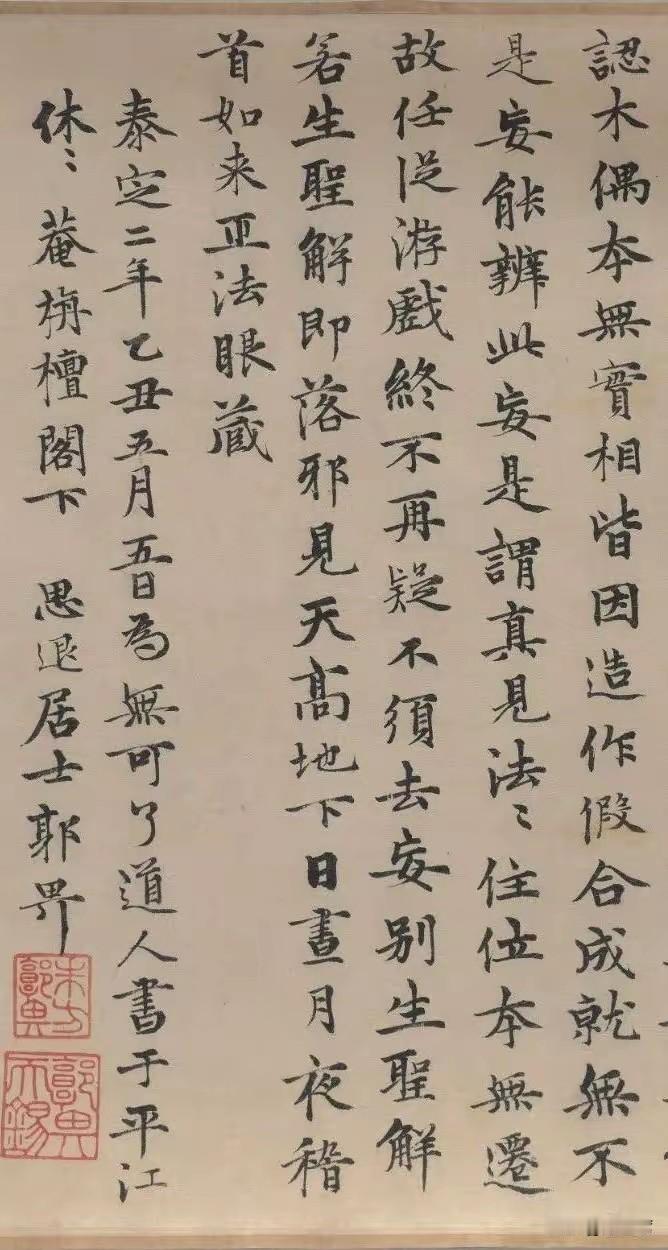 認木偶夲無實相皆因造作假合成就無不
是妄能辨此妄是謂真見法〻住位夲無遷
故任從游戲終不再疑不須去妄别生聖解
若生聖解即落邪見天髙地下日晝月夜稽
首如来正法眼蔵
泰定二年乙丑五月五日為無可了道人書于平江
休〻菴栴檀閣下 思退居士郭畀
郭畀
郭畀天錫